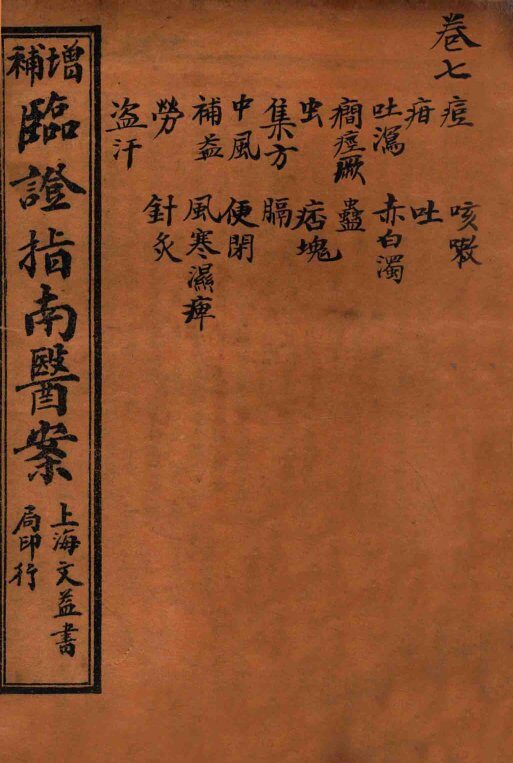 卷七
痘 咳嗽
疳 吐
吐瀉 赤白濁
癎痙厥 蠱
虫 痞塊
集方 膈
中風 便閉
補益 風寒濕痺
勞 針灸
盗汗
增補
臨證指南醫案
上海文益書
局印行